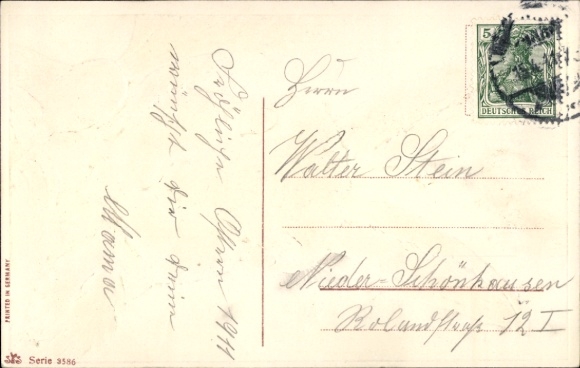 Fröhliche Ostern 1911
wünscht dir deine
Mama
Herrn
Walter Stein
Nieder-Schönhausen
Rolandstraße 12 I
5
DEUTSCHES REICH
PRINTED IN GERMANY
Serie 3586